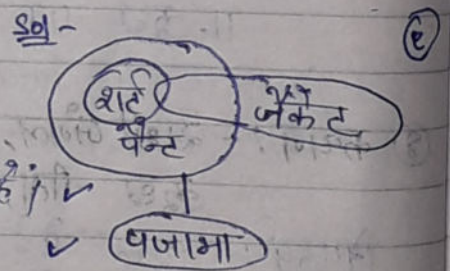 Sol -
शर्ट
पेन्ट
जैकेट
है। ✓
✓ पजामा